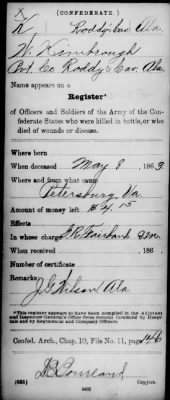 X
(CONFEDERATE)
K Roddy's Cav Ala.
W. Kimbrough
Pvt. Co Roddy's Cav., Ala.
Name appears on a
Register*
of Officers and Soldiers of the Army of the Con-
federate States who were killed in battle, or who
died of wounds or disease.
Where born
When deceased May 8, 1863
Where and from what cause
Petersburg, Va.
Amount of money left $4.15
Effects
In whose charge Fairbank
When received , 186 .
Number of certificate
Remarks:
J. G. Wilson Ala
*This register appears to have been compiled in the Adjutant
and Inspector General's Office from returns furnished by Hospi-
tals and by Regimental and Company Officers.
Confed. Arch., Chap. 10, File No. 11, page 146
Courland
(635) Copyist.